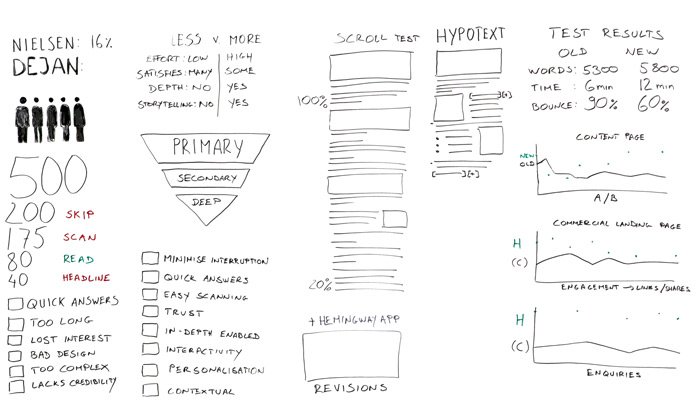 NIELSEN: 16%
DEJAN:
500
200 SKIP
175 SCAN
80 READ
40 HEADLINE
QUICK ANSWERS
TOO LONG
LOST INTEREST
BAD DESIGN
TOO COMPLEX
LACKS CREDIBILITY
LESS V. MORE
EFFORT: LOW HIGH
SATISFIES: MANY SOME
DEPTH: NO YES
STORYTELLING: NO YES
PRIMARY
SECONDARY
DEEP
MINIMISE INTERRUPTION
QUICK ANSWERS
EASY SCANNING
TRUST
IN-DEPTH ENABLED
INTERACTIVITY
PERSONALISATION
CONTEXTUAL
SCROLL TEST
100%
20%
+ HEMINGWAY APP
REVISIONS
HYPOTEXT
[+]
[+]
TEST RESULTS
OLD NEW
WORDS: 5300 5800
TIME: 6min 12min
BOUNCE: 90% 60%
CONTENT PAGE
NEW
OLD
A/B
COMMERCIAL LANDING PAGE
H
(C)
ENGAGEMENT → LINKS/SHARES
H
(C)
ENQUIRIES